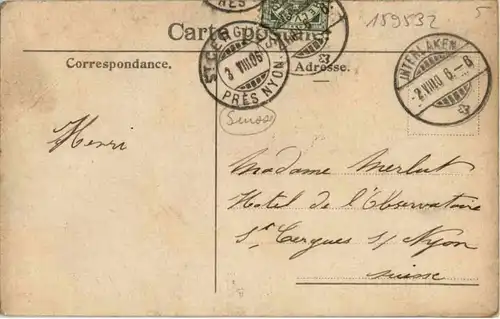 159532
5
Carte postale
ST CERGUES
3 VIII 06
PRÈS NYON
INTERLAKEN
2 VIII 06 - 8
Correspondance.
Adresse.
Suisse
Henri
Madame Merlut
Hotel de l'Observatoire
St Cergues s/ Nyon
Suisse